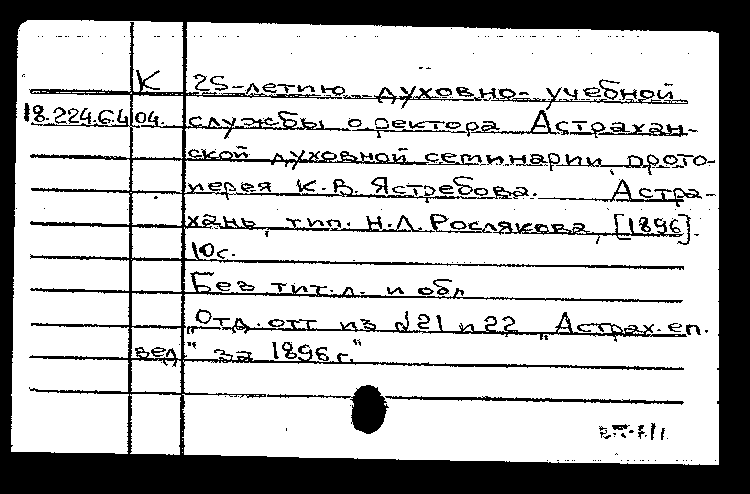 К 25-летию духовно-учебной
18.224.6.404. службы о.ректора Астрахан-
ской духовной семинарии, прото-
иерея К.В. Ястребова. Астра-
хань, тип. Н.Л. Рослякова, [1896].
10с.
Без тит.л. и обл
"Отд. отт из №21 и 22 "Астрах. еп.
вед." за 1896г."